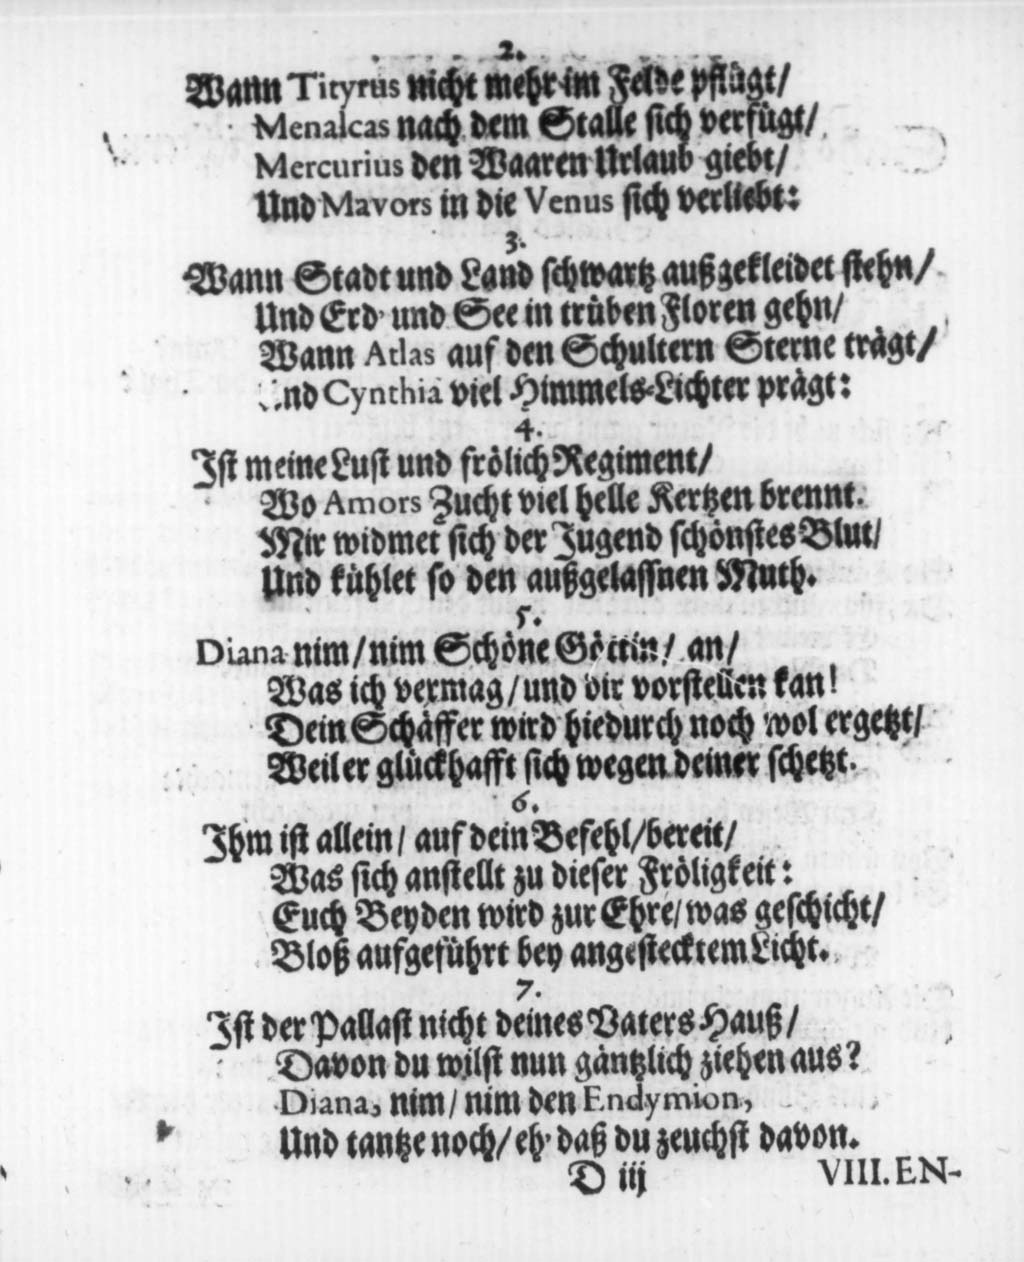 2.
Wann Tityrus nicht mehr im Felde pflügt/
Menalcas nach dem Stalle sich verfügt/
Mercurius den Waaren Urlaub giebt/
Und Mavors in die Venus sich verliebt:
3.
Wann Stadt und Land schwartz außgekleidet stehn/
Und Erd' und See in trüben Floren gehn/
Wann Atlas auf den Schultern Sterne trägt/
Und Cynthia viel Himmels-Lichter prägt:
4.
Ist meine Lust und frölich Regiment/
Wo Amors Zucht viel helle Kertzen brennt.
Mir widmet sich der Jugend schönstes Blut/
Und kühlet so den außgelassnen Muth.
5.
Diana nim/nim Schöne Göttin/ an/
Was ich vermag/und dir vorstellen kan!
Dein Schäffer wird hiedurch noch wol ergetzt/
Weil er glückhafft sich wegen deiner schetzt.
6.
Ihm ist allein/ auf dein Befehl/bereit/
Was sich anstellt zu dieser Fröligkeit:
Euch Beyden wird zur Ehre/was geschicht/
Bloß aufgeführt bey angestecktem Licht.
7.
Ist der Pallast nicht deines Vaters Hauß/
Davon du wilst nun gäntzlich ziehen aus?
Diana, nim/ nim den Endymion,
Und tantze noch/eh' daß du zeuchst davon.
D iij VIII. EN-